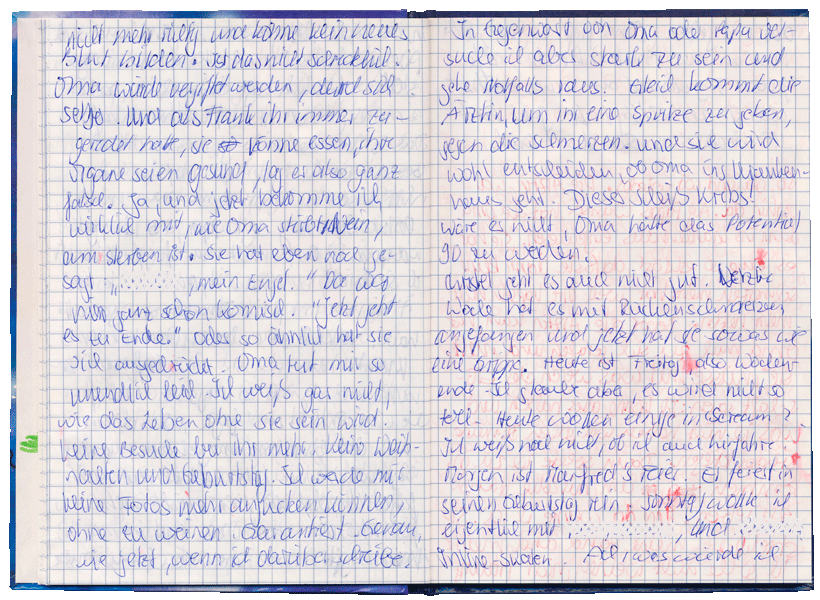 nicht mehr richtig und könne kein neues
Blut bilden. Ist das nicht schrecklich.
Oma würde vergiftet werden, durch sich
selbst. Und als Frank ihr immer zu-
geredet habe, sie könne essen, ihre
Organe seien gesund, lag er also ganz
falsch. Ja, und jetzt bekomme ich
wirklich mit, wie Oma stirbt, Nein,
am sterben ist. Sie hat eben noch ge-
sagt „ , mein Engel." Da war
mir ganz schön komisch. "Jetzt geht
es zu Ende." Oder so ähnlich hat sie
sich ausgedrückt. Oma tut mir so
unendlich leid. Ich weiß gar nicht,
wie das Leben ohne sie sein wird.
Keine Besuche bei ihr mehr, kein Weih-
nachten und Geburtstag. Ich werde mir
keine Fotos mehr angucken können,
ohne zu weinen. Garantiert. Genau,
wie jetzt, wenn ich darüber schreibe.
In Gegenwart von Oma oder Papa ver-
suche ich aber stark zu sein und
gehe notfalls raus. Gleich kommt die
Ärztin, um ihr eine Spritze zu geben,
gegen die Schmerzen. Und sie wird
wohl entscheiden, ob Oma ins Kranken-
haus geht. Dieser Scheiß Krebs!
wäre er nicht, Oma hätte das Potential
90 zu werden.
geht es auch nicht gut. Letzte
Woche hat es mit Rückenschmerzen
angefangen und jetzt hat sie sowas wie
eine Grippe. Heute ist Freitag, also Wochen-
ende - Ich glaube aber, es wird nicht so
toll - Heute wollen einige in Scream 2
Ich weiß noch nicht, ob ich auch hinfahre.
Morgen ist Manfred's Feier. Er feiert in
seinen Geburtstag rein. Sonntag wollte ich
eigentlich mit , und
Inline-Skaten. Ach, was würde ich